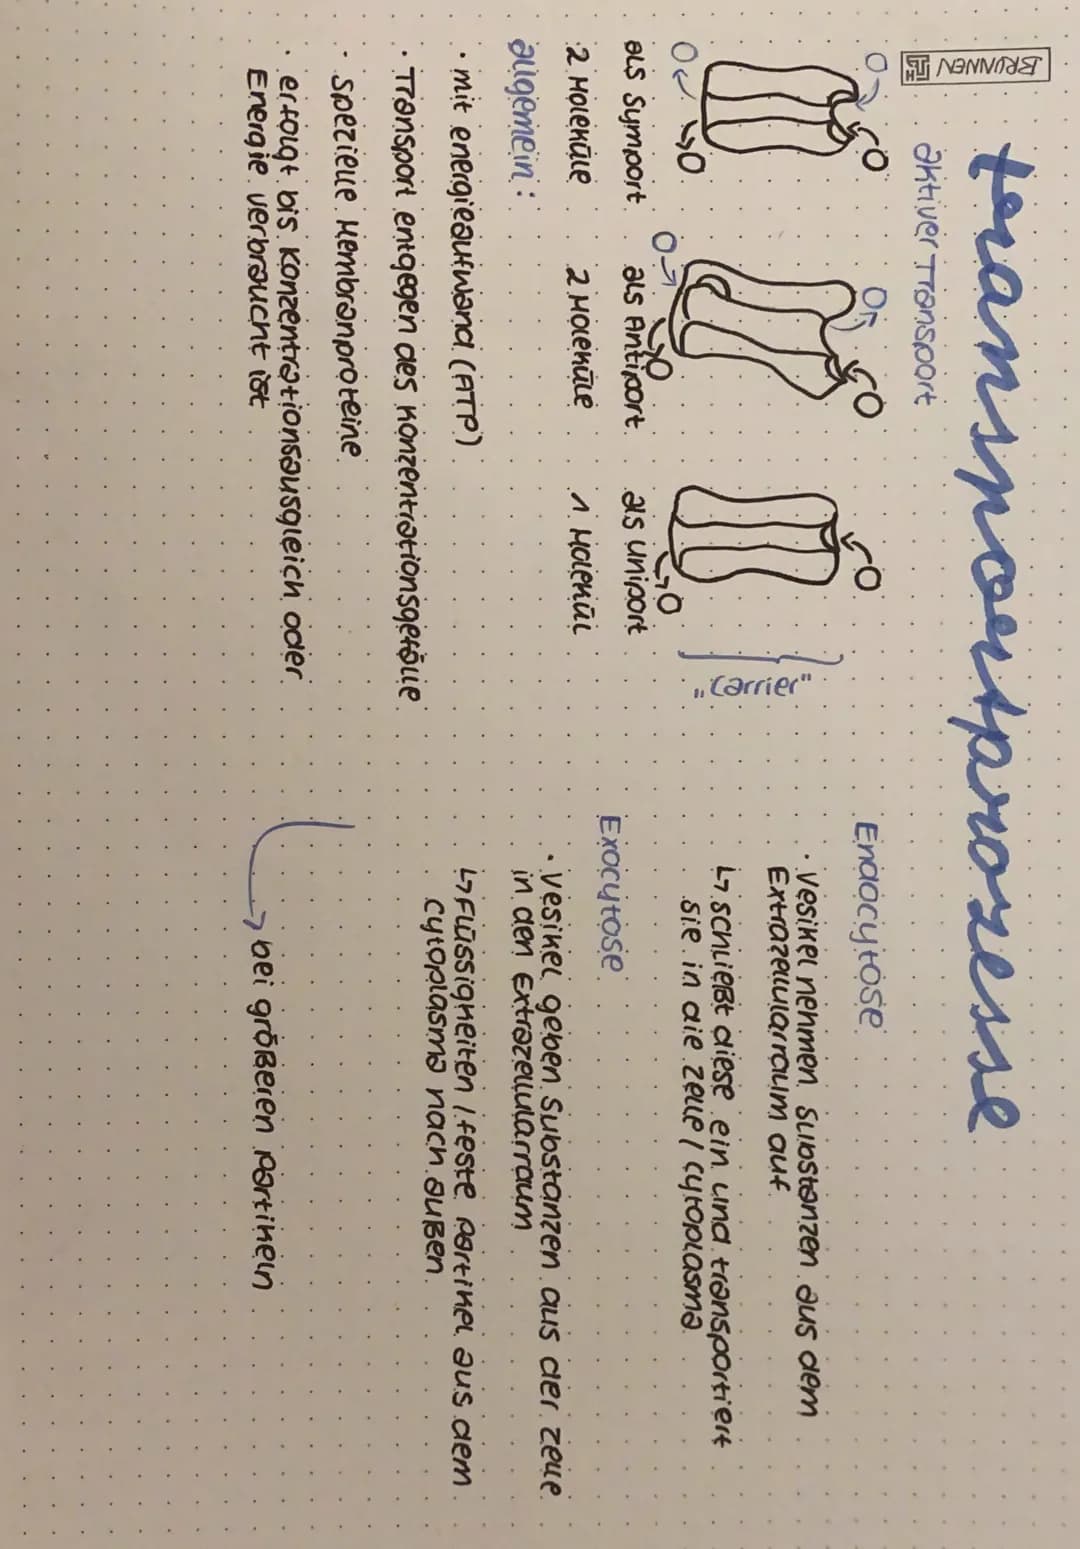 BRUNNEN
transportprozesse
aktiver Transport
als Symport
als Antiport
als Uniport
2 Moleküle
2 Moleküle
1 Molekül
"Carrier"
allgemein:
· mit energieaufwand (ATP)
· Transport entgegen des Konzentrationsgefälle
· Spezielle Membranproteine
· erfolgt bis Konzentrationsausgleich oder
Energie verbraucht ist
Endocytose
· Vesikel nehmen Substanzen aus dem
Extrazellularraum auf
↳ schließt diese ein und transportiert
sie in die Zelle / Cytoplasma
Exocytose
· Vesikel geben Substanzen aus der Zelle
in den Extrazellularraum
↳ Flüssigkeiten / feste Partikel aus dem
Cytoplasma nach außen
→ bei größeren Partikeln